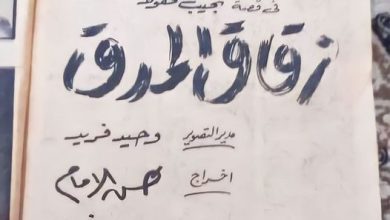 فى قصة نجيب محفوظ
زقاق المدق
مدير التصوير وحيد فريد
اخراج حسن الامام